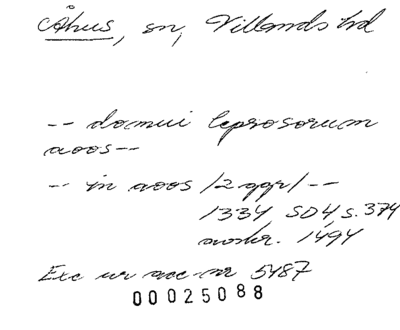 Åhus, sn, Villands hd
-- domui leprosorum
aoos --
-- in aoos /2 ggr/ --
1334 SD4, s. 374
avskr. 1494
Exc ur acc-nr 5487
00025088